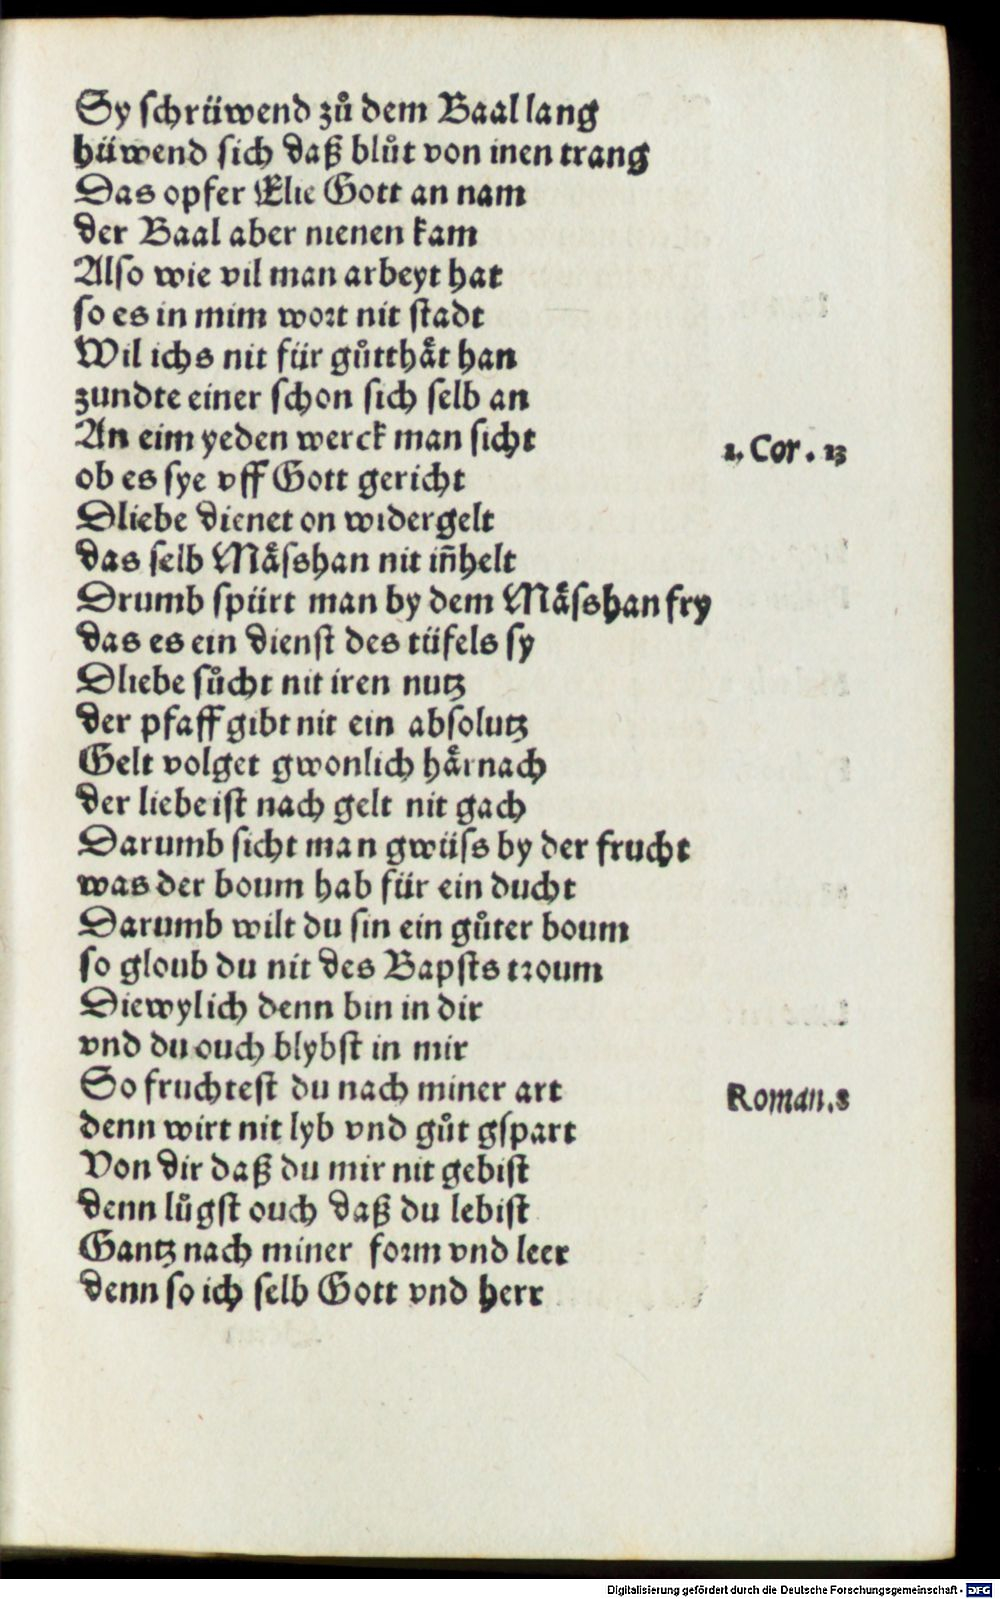 Sy schrüwend zů dem Baal lang
hüwend sich daß blůt von inen trang
Das opfer Elie Gott an nam
der Baal aber nienen kam
Also wie vil man arbeyt hat
so es in mim wort nit stadt
Wil ichs nit für gůtthåt han
zundte einer schon sich selb an
An eim yeden werck man sicht
1. Cor. 13
ob es sye vff Gott gericht
Dliebe dienet on widergelt
das selb Måsshan nit iñhelt
Drumb spürt man by dem Måsshan fry
das es ein dienst des tüfels sy
Dliebe sůcht nit iren nutz
der pfaff gibt nit ein absolutz
Gelt volget gwonlich hårnach
der liebe ist nach gelt nit gach
Darumb sicht man gwüss by der frucht
was der boum hab für ein ducht
Darumb wilt du sin ein gůter boum
so gloub du nit des Bapsts troum
Diewyl ich denn bin in dir
vnd du ouch blybst in mir
So fruchtest du nach miner art
Roman. 8
denn wirt nit lyb vnd gůt gspart
Von dir daß du mir nit gebist
denn lůgst ouch daß du lebist
Gantz nach miner form vnd leer
denn so ich selb Gott vnd herr
Digitalisierung gefördert durch die Deutsche Forschungsgemeinschaft - DFG